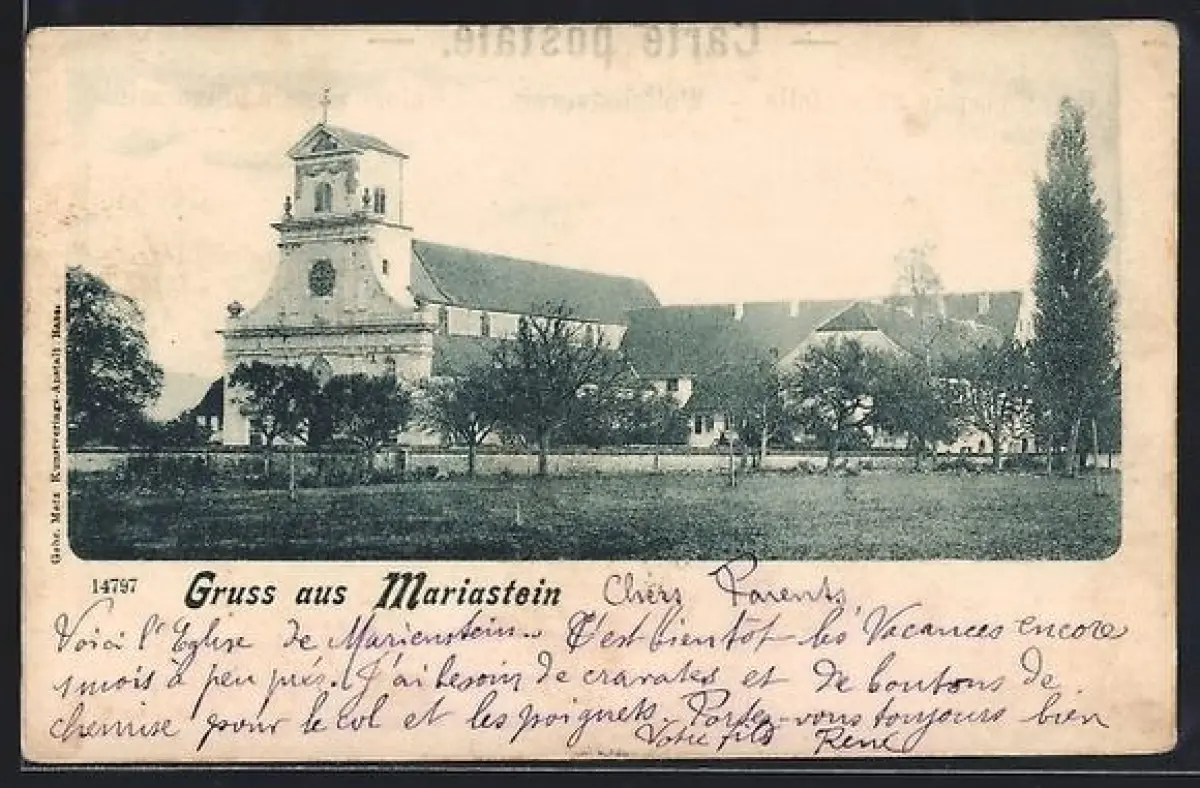 Carte postale.
Gebr. Metz Kunstverlags-Anstalt Basel
14797 Gruss aus Mariastein Chers Parents
Voici l'Eglise de Marienstein. C'est bientôt les Vacances encore
1 mois à peu près. J'ai besoin de cravates et de boutons de
chemise pour le col et les poignets. Portez-vous toujours bien
Votre fils René